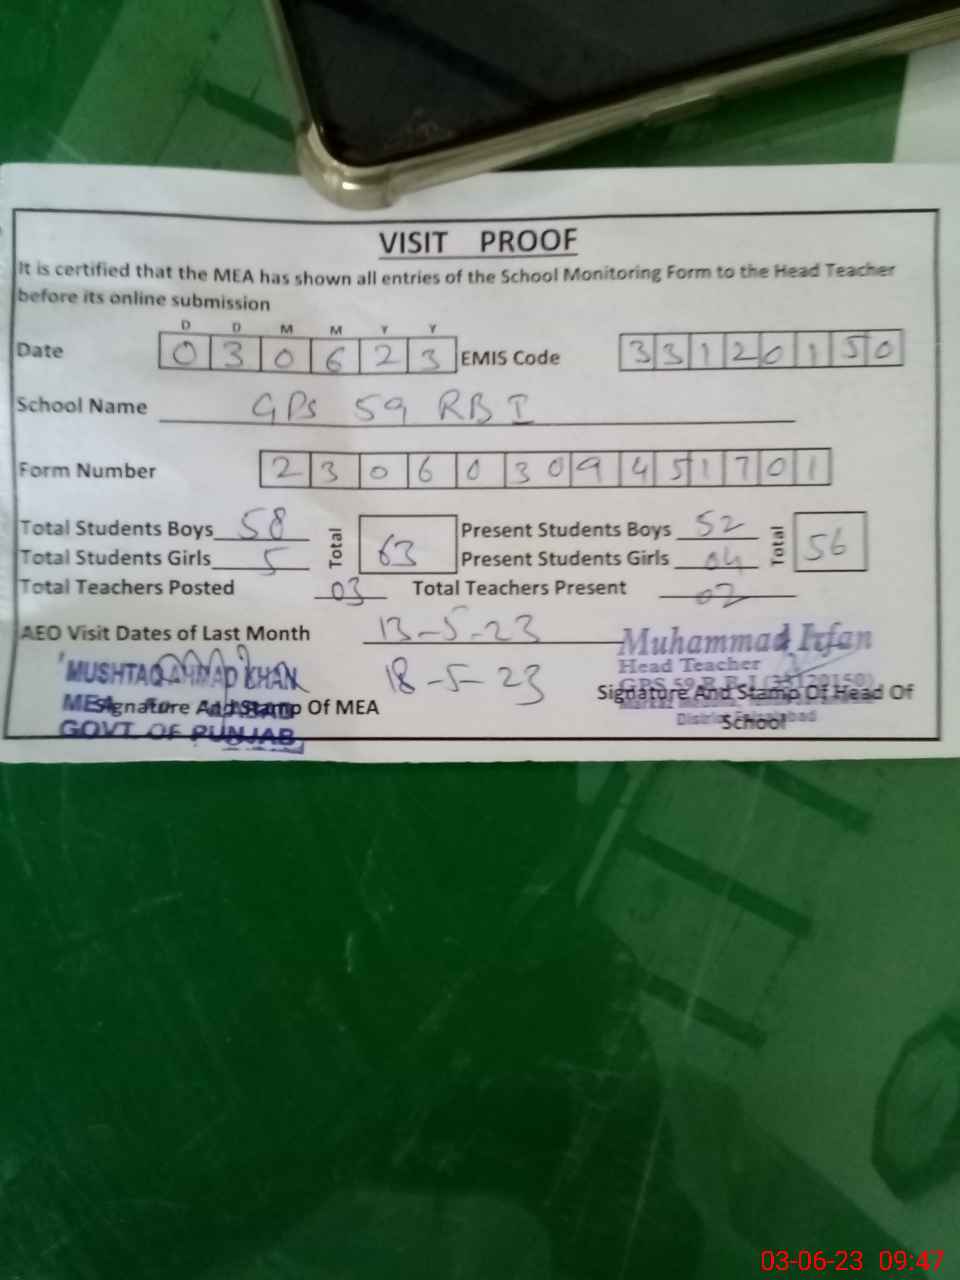 VISIT PROOF
It is certified that the MEA has shown all entries of the School Monitoring Form to the Head Teacher
before its online submission
D D M M Y Y
Date 0 3 0 6 2 3 EMIS Code 3 3 1 2 0 1 5 0
School Name GPS 59 RB I
Form Number 2 3 0 6 0 3 0 9 4 5 1 7 0 1
Total Students Boys 58 Total 63 Present Students Boys 52 Total 56
Total Students Girls 5 Present Students Girls 04
Total Teachers Posted 03 Total Teachers Present 02
AEO Visit Dates of Last Month 13-5-23
18-5-23
MUSHTAQ AHMAD KHAN
MEA
Signature And Stamp Of MEA
GOVT. OF PUNJAB
Muhammad Irfan
Head Teacher
GPS 59 R.B-I (33120150)
Signature And Stamp Of Head Of
School
03-06-23 09:47